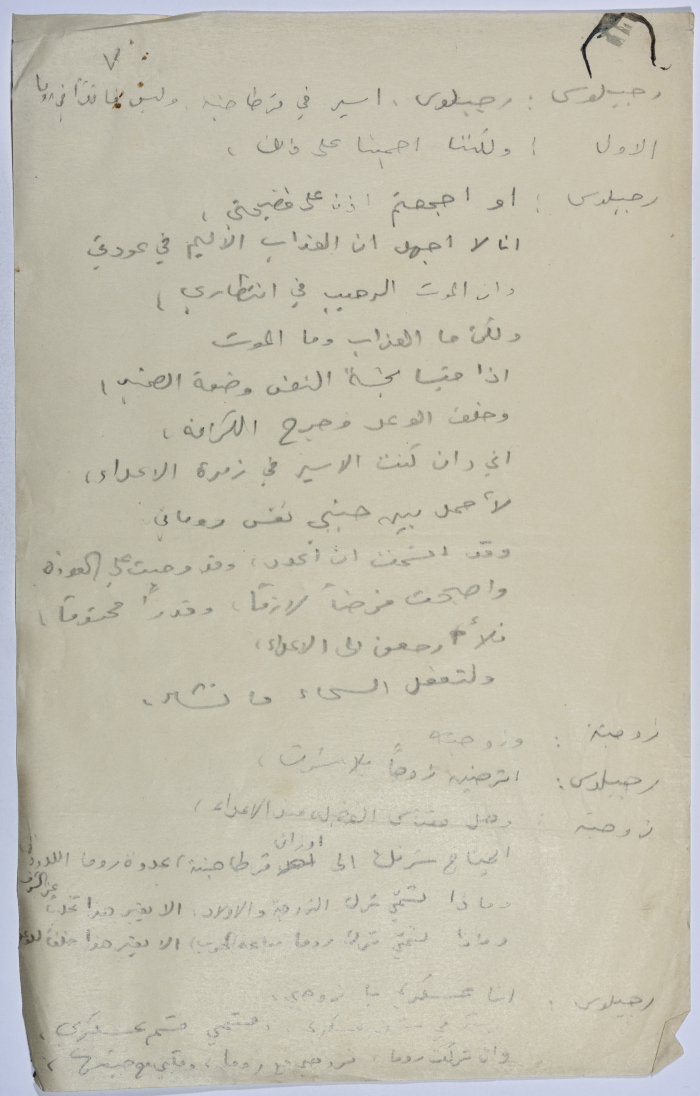 ٧
رجيلوس : رجيلوس، اسير في قرطاجنة. وليس قائداً في روما
الاول : ولكننا اجمعنا على ذلك،
رجيلوس : او اجمعتم اذن على فضيحتي،
انا لا اجهل ان العذاب الأليم في عودتي
وان الموت الرهيب في انتظاري،
ولكن ما العذاب وما الموت
اذا قيسا بخسة النفس وضعة الضمير،
وخلف الوعد وجرح الكرامة،
اني وان كنت الاسير في زمرة الاعداء،
لأحمل بين جنبي نفس روماني
وقد اقسمت ان أعود، وقد وجبت علي العودة
واصبحت فرضاً لازماً، وقدراً محتوماً،
فلأرجعن الى الاعداء،
ولتفعل السماء ما تشاء.
زوجته : وزوجته
رجيلوس : اترضين زوجاً بلا شرف،
زوجته : وهل عند الاعداء،
ايحتاج شرفك الى اوزان قرطاجنة، عدوة روما اللدودة
وماذا تسمي ترك الزوجة والاولاد، الا يعتبر هذا
وماذا تسمي ترك روما الا يعتبر هذا
رجيلوس : انا عسكري يا زوجتي،
قسم عسكري،
وان تركت روما، فروحي مع روما، وقلبي مع